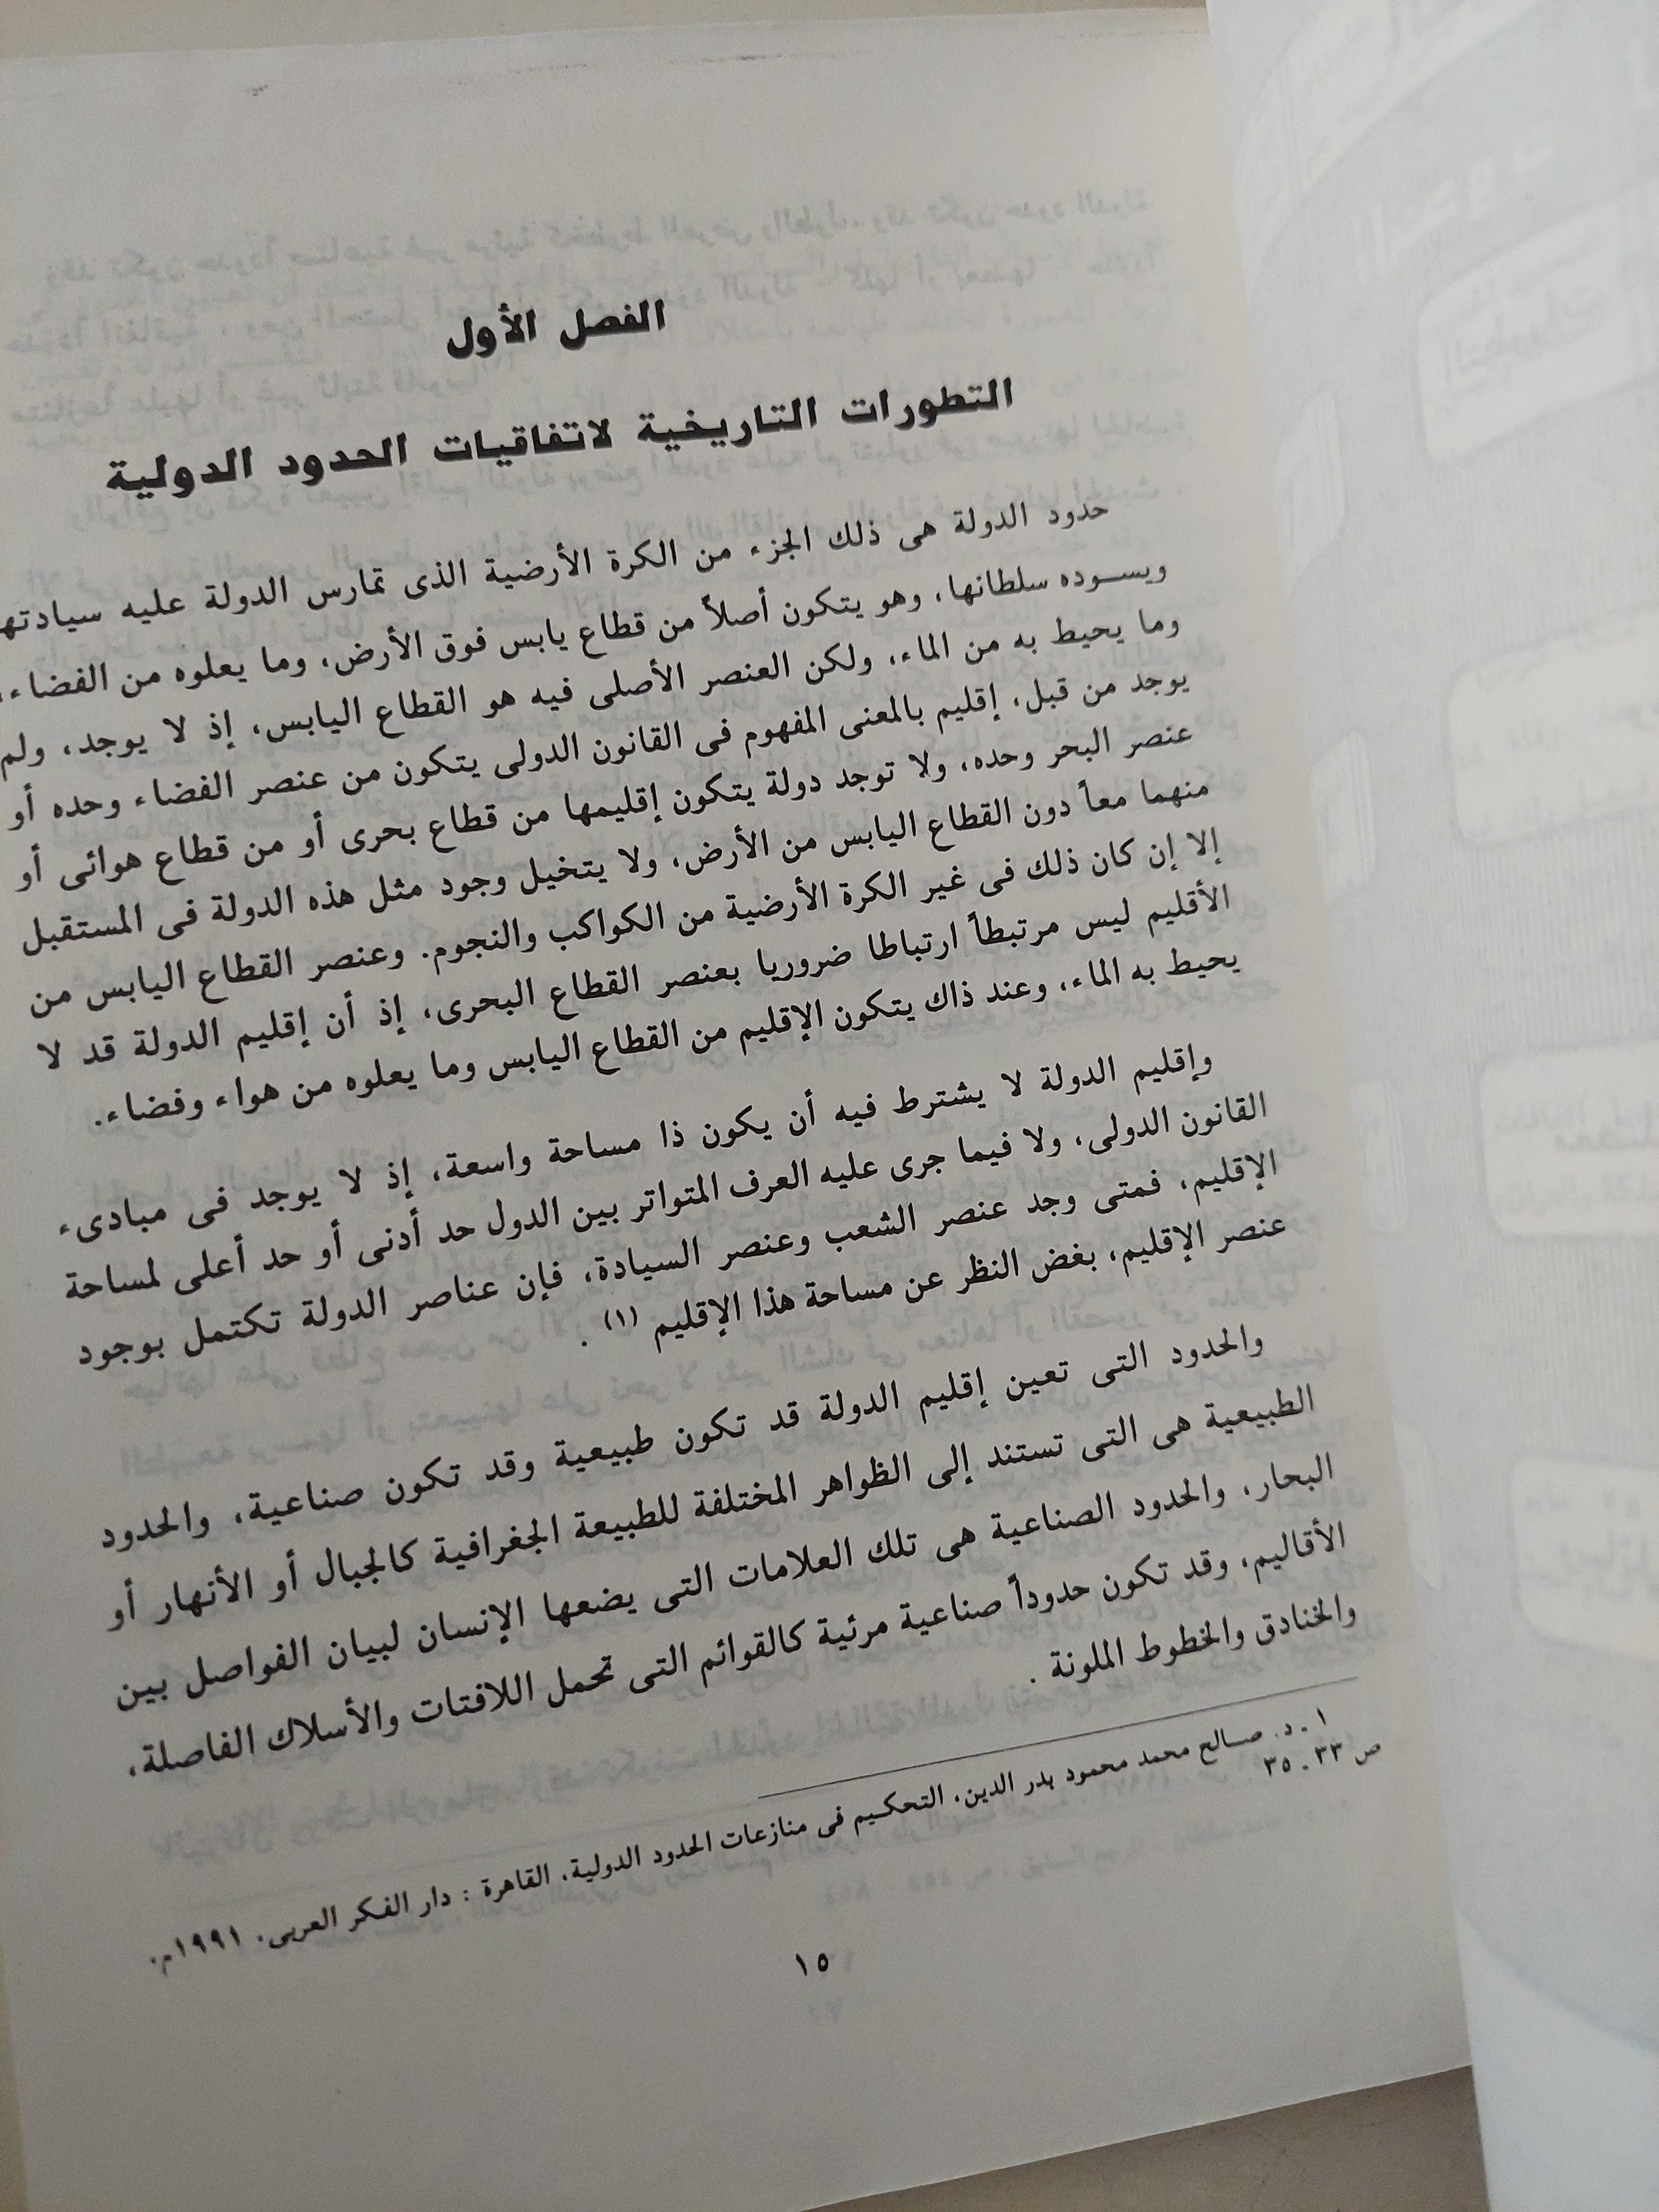 الفصل الأول
التطورات التاريخية لاتفاقيات الحدود الدولية
حدود الدولة هى ذلك الجزء من الكرة الأرضية الذى تمارس الدولة عليه سيادتها
ويســوده سلطانها، وهو يتكون أصلاً من قطاع يابس فوق الأرض، وما يعلوه من الفضاء،
وما يحيط به من الماء، ولكن العنصر الأصلى فيه هو القطاع اليابس، إذ لا يوجد، ولم
يوجد من قبل، إقليم بالمعنى المفهوم فى القانون الدولى يتكون من عنصر الفضاء وحده أو
عنصر البحر وحده، ولا توجد دولة يتكون إقليمها من قطاع بحرى أو من قطاع هوائى أو
منهما معاً دون القطاع اليابس من الأرض، ولا يتخيل وجود مثل هذه الدولة فى المستقبل
إلا إن كان ذلك فى غير الكرة الأرضية من الكواكب والنجوم. وعنصر القطاع اليابس من
الأقليم ليس مرتبطاً ارتباطا ضروريا بعنصر القطاع البحرى، إذ أن إقليم الدولة قد لا
يحيط به الماء، وعند ذاك يتكون الإقليم من القطاع اليابس وما يعلوه من هواء وفضاء.
وإقليم الدولة لا يشترط فيه أن يكون ذا مساحة واسعة، إذ لا يوجد فى مبادىء
القانون الدولى، ولا فيما جرى عليه العرف المتواتر بين الدول حد أدنى أو حد أعلى لمساحة
الإقليم، فمتى وجد عنصر الشعب وعنصر السيادة، فإن عناصر الدولة تكتمل بوجود
عنصر الإقليم، بغض النظر عن مساحة هذا الإقليم (١) .
والحدود التى تعين إقليم الدولة قد تكون طبيعية وقد تكون صناعية، والحدود
الطبيعية هى التى تستند إلى الظواهر المختلفة للطبيعة الجغرافية كالجبال أو الأنهار أو
البحار، والحدود الصناعية هى تلك العلامات التى يضعها الإنسان لبيان الفواصل بين
الأقاليم، وقد تكون حدوداً صناعية مرئية كالقوائم التى تحمل اللافتات والأسلاك الفاصلة،
والخنادق والخطوط الملونة .
١ - د. صــالح محمد محمود بدر الدين، التحكــيم فى منازعات الحدود الدولية، القاهرة : دار الفكر العربى، ١٩٩١م.
ص ٣٣ - ٣٥
١٥